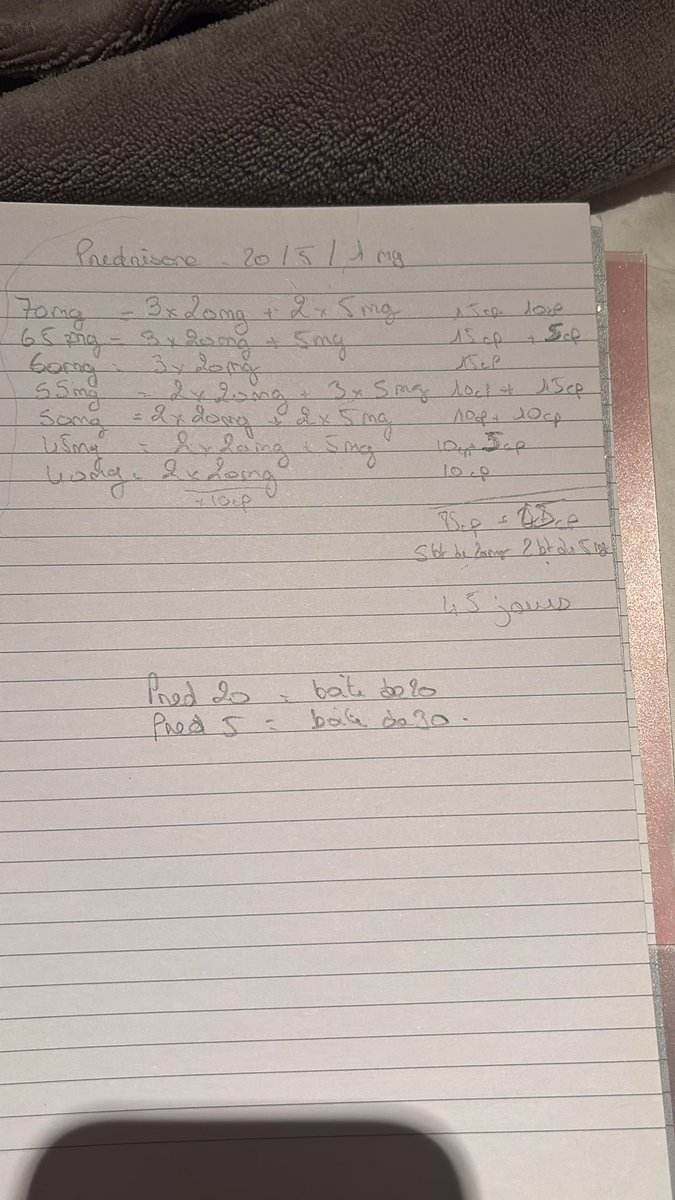 Prednisone - 20/5/1 mg
70mg = 3x20mg + 2x5mg 15cp 10cp
65mg = 3x20mg + 5mg 15cp + 5cp
60mg = 3x20mg 15cp
55mg = 2x20mg + 3x5mg 10cp + 15cp
50mg = 2x20mg + 2x5mg 10cp + 10cp
45mg = 2x20mg + 5mg 10 + 5cp
40mg = 2x20mg 10cp
= 10cp
85cp = cp
5 bt de 20mg 2 bt de 5mg
45 jours
Pred 20 = boîte de 20
Pred 5 = boîte de 30.